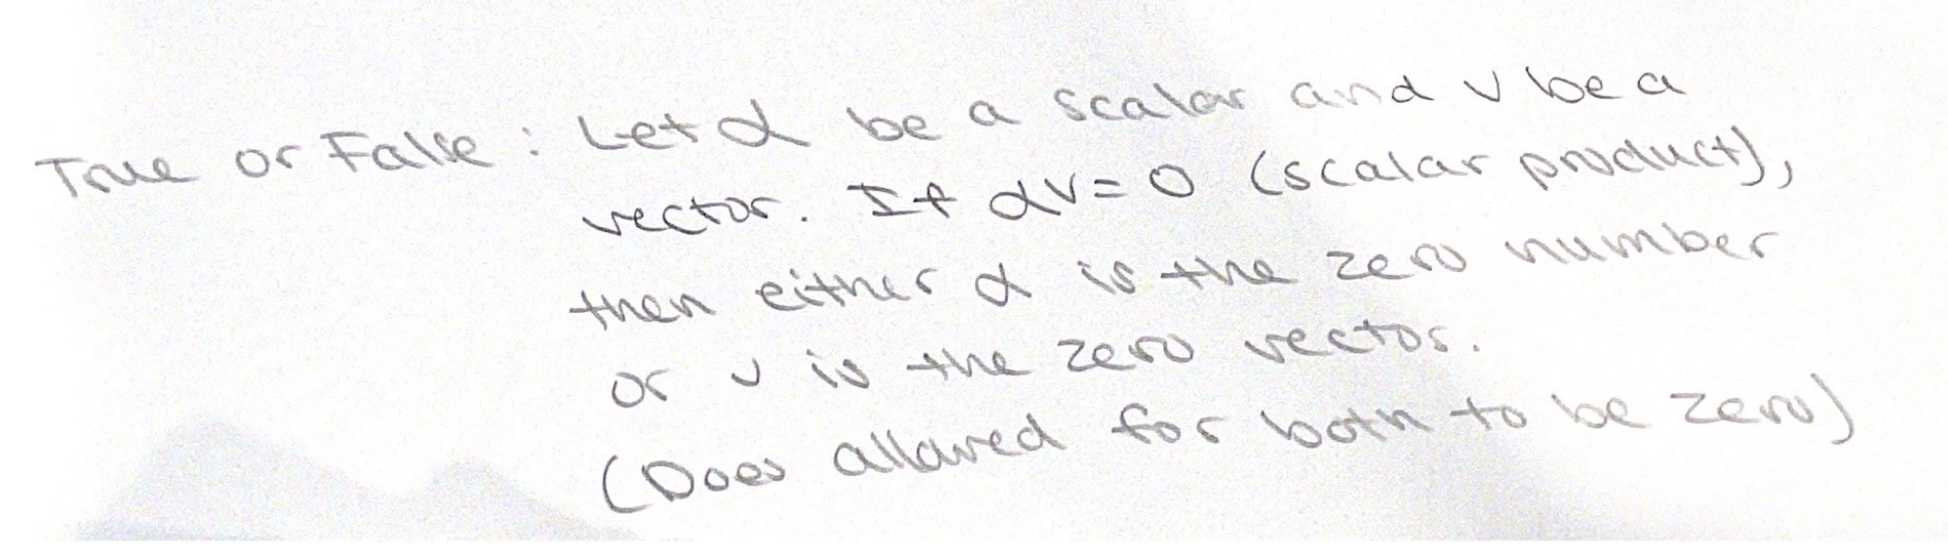 True or False : Let α be a scalar and v be a
vector. If αv = 0 (scalar product),
then either α is the zero number
or v is the zero vector.
(Does allowed for both to be zero)